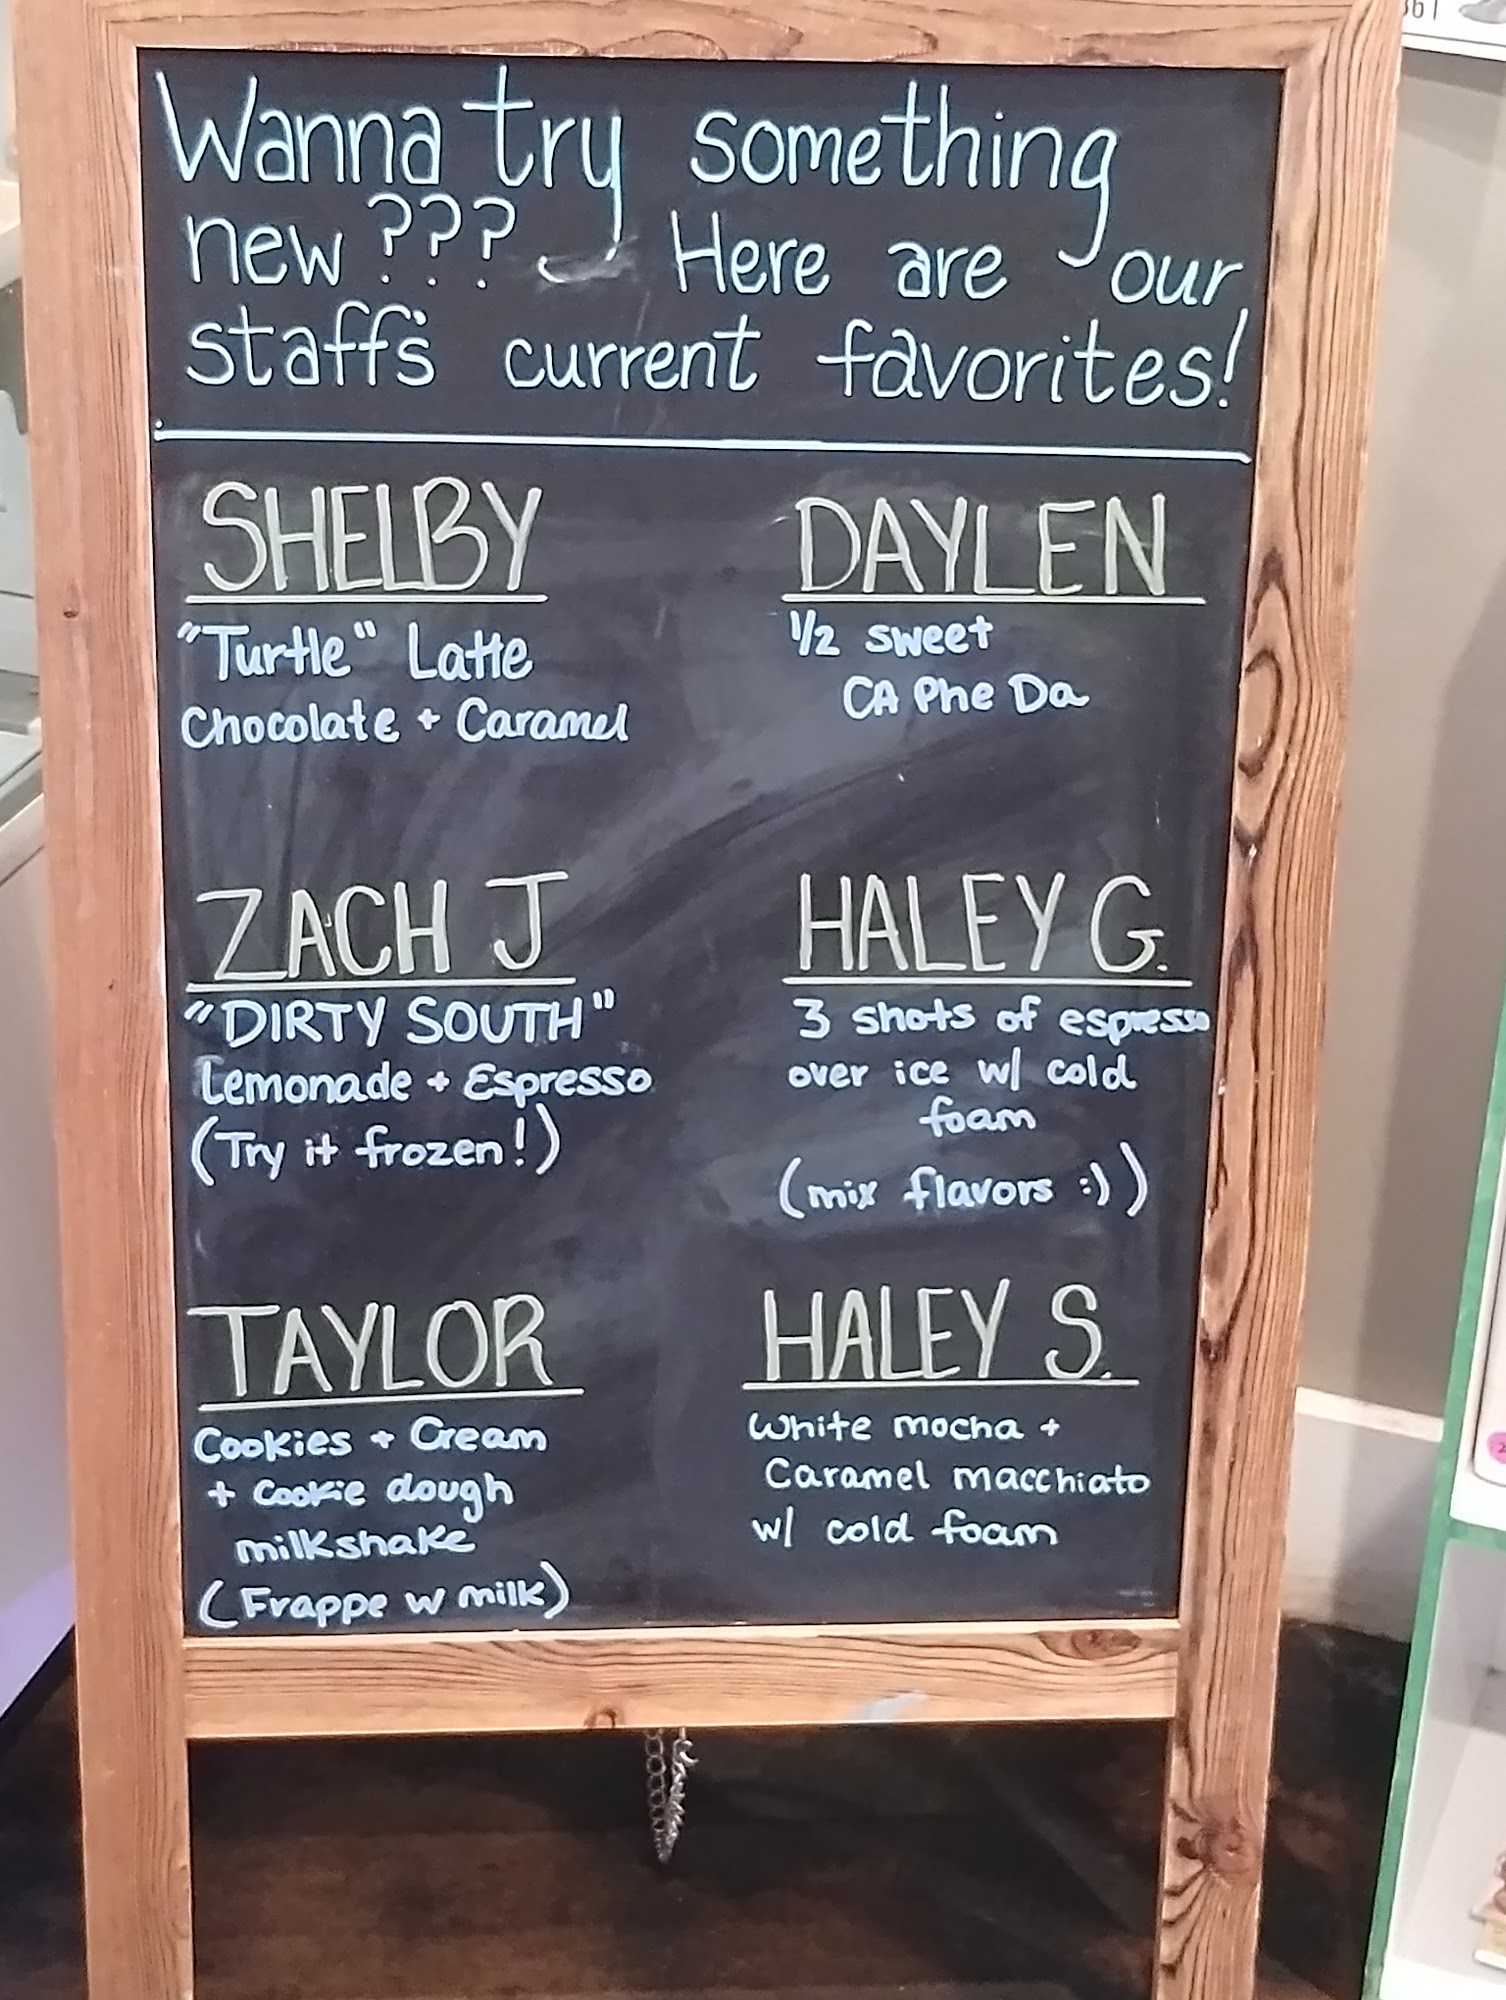 Wanna try something
new ??? Here are our
staff's current favorites!
SHELBY
"Turtle" Latte
Chocolate + Caramel
DAYLEN
1/2 sweet
CA Phe Da
ZACH J
"DIRTY SOUTH"
Lemonade + Espresso
(Try it frozen!)
HALEY G.
3 shots of espresso
over ice w/ cold
foam
(mix flavors :))
TAYLOR
Cookies + Cream
+ Cookie dough
milkshake
(Frappe w milk)
HALEY S.
White mocha +
Caramel macchiato
w/ cold foam